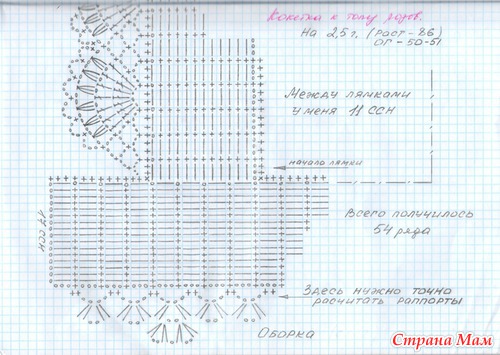 Кокетка к топу розов.
На 2,5 г. (Раст-86)
ОГ-50-51
Между лямками
у меня 11 ССН
начало лямки
Всего получилось
54 ряда
17 ССН
Здесь нужно точно
расчитать раппорты
ОБОРКА
Страна Мам